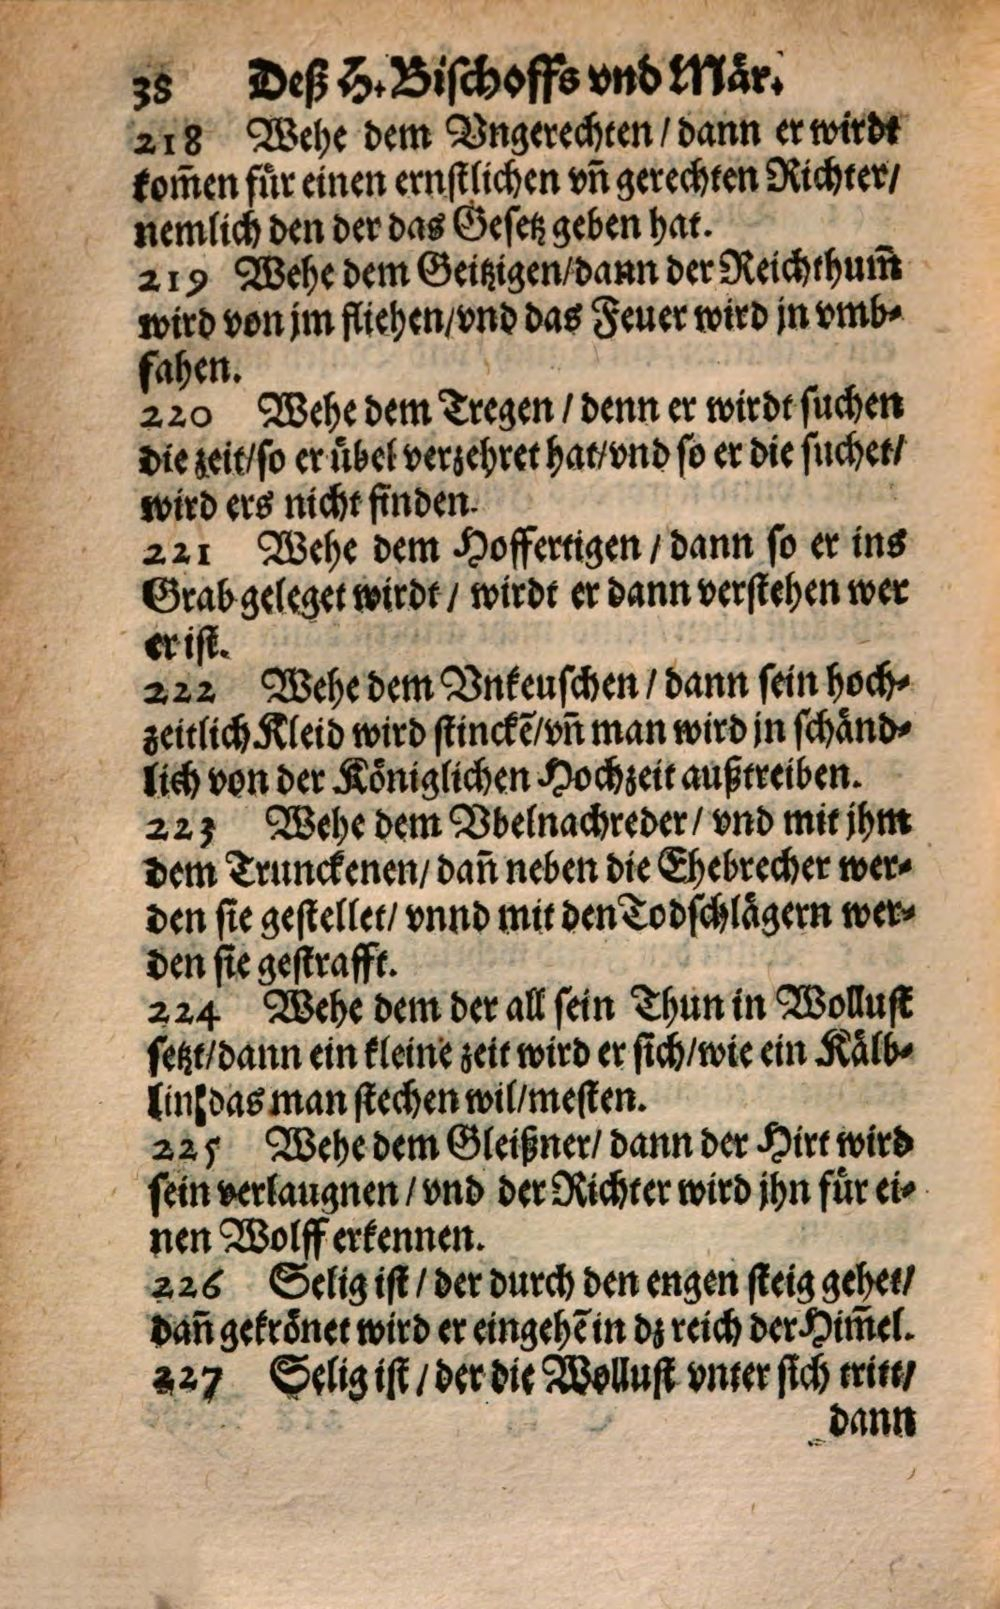 38 Deß H. Bischoffs vnd Mär.
218 Wehe dem Vngerechten / dann er wirdt
kom̃en für einen ernstlichen vñ gerechten Richter /
nemlich den der das Gesetz geben hat.
219 Wehe dem Geitzigen / dann der Reichthum̃
wird von jm fliehen / vnd das Feuer wird jn vmb⸗
fahen.
220 Wehe dem Tregen / denn er wirdt suchen
die zeit / so er übel verzehret hat / vnd so er die suchet /
wird ers nicht finden.
221 Wehe dem Hoffertigen / dann so er ins
Grab geleget wirdt / wirdt er dann verstehen wer
er ist.
222 Wehe dem Vnkeuschen / dann sein hoch⸗
zeitlich Kleid wird stinckẽ / vñ man wird jn schänd⸗
lich von der Königlichen Hochzeit außtreiben.
223 Wehe dem Vbelnachreder / vnd mit jhm
dem Trunckenen / dañ neben die Ehebrecher wer⸗
den sie gestellet / vnnd mit den Todschlägern wer⸗
den sie gestrafft.
224 Wehe dem der all sein Thun in Wollust
setzt / dann ein kleine zeit wird er sich / wie ein Kälb⸗
lin / das man stechen wil / mesten.
225 Wehe dem Gleißner / dann der Hirt wird
sein verlaugnen / vnd der Richter wird jhn für ei⸗
nen Wolff erkennen.
226 Selig ist / der durch den engen steig gehet /
dañ gekrönet wird er eingehẽ in dz reich der Him̃el.
227 Selig ist / der die Wollust vnter sich tritt /
dann